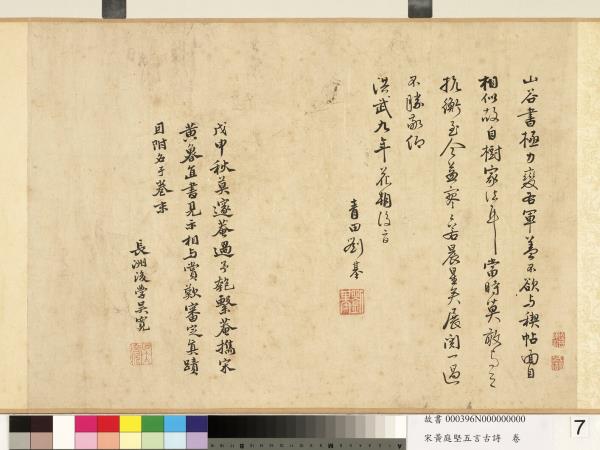 山谷書極力變右軍蓋不欲与禊帖面目
相似故自樹家法耳當時莫敢与之
抗衡至今益寥寥若晨星矣展閱一過
不勝敬仰
洪武九年花朝後二日
青田劉基
戊申秋莫邃菴過予匏繫菴攜宋
黃魯直書見示相与賞歎審定真蹟
因附名于卷末
長洲後學吳寬
故書 000396N000000000
宋黃庭堅五言古詩 卷
7